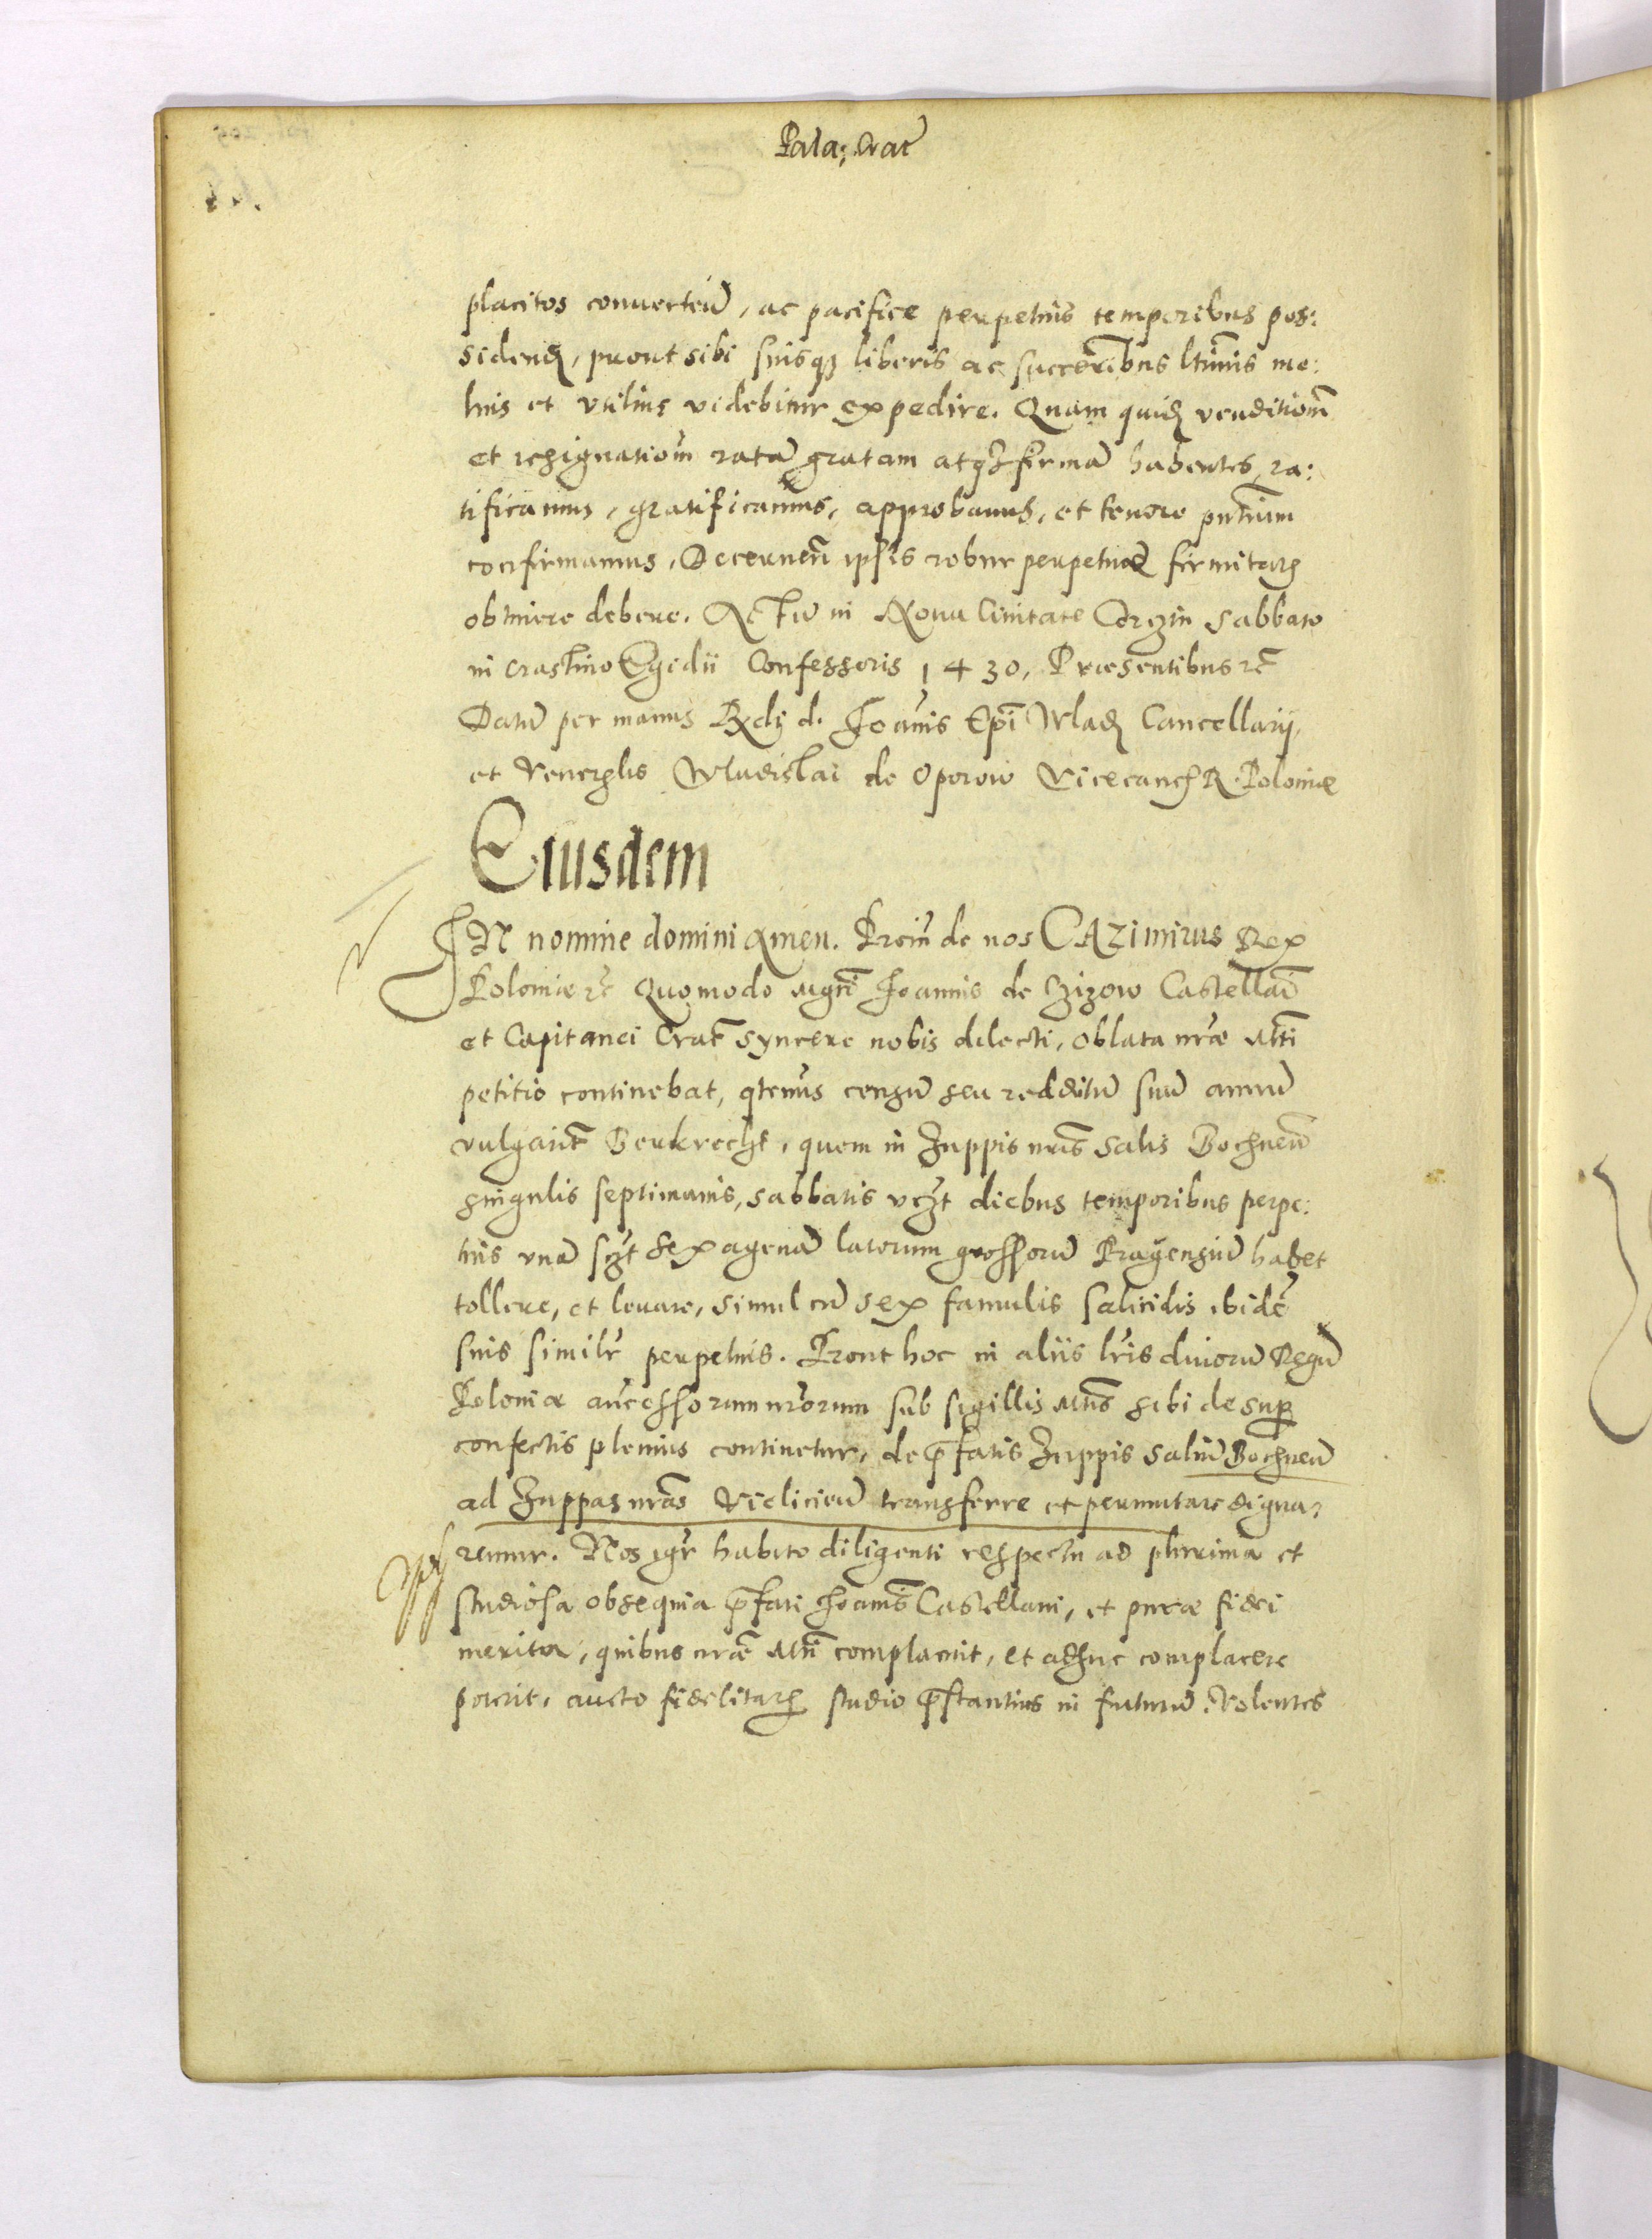 Pala: Crac̄
placitos conuerteñ, ac pacifice perpetuis temporibus pos:
sidendꝫ, prout sibi suisqꝫ liberis ac succeribus ltimis me:
lius et vtilius videbitur expedire. Quam quidꝫ venditiom̄
et resignatiom̄ ratā gratam atqꝫ firmā habentes, ra:
tificamus, gratificamus, approbamus, et tenore pn̄tium
confirmamus, Decernen̄ ipsis robur perpetuæ firmitatꝭ
obtinere debere. Actū in Noua Ciuitate Corczin Sabbato
in crastino Egidii Confessoris 1430, Præsentibus ꝛc̄
Datū per manus Rxdi d. Joānis Epī Wladꝫ Cancellarij,
et Venerglis Wladislai de Oporow Vicecancꝫ R. Poloniæ
Eiusdem
IN nomine domini Amen. Proin̄ de nos CAZimirus Rex
Poloniæ ꝛc̄ Quomodo Mgn̄i Joannis de Czizow Castellāi
et Capitanei Crac̄ syncere nobis dilecti, oblata nr̄æ Mti
petitio continebat, qtenus censū seu redditū suū annuū
vulgarit̄ Berkrecht, quem in Zuppis nr̄is Salis Bochnen̄
singulis septimanis, sabbatis vczt diebus temporibus perpe:
tuis vnā sczt sexagenā latorum grossorū Pragensiū habet
tollere, et leuare, simul cū sex famulis salicidis ibidē
suis similr̄ perpetuis. Prout hoc in aliis lr̄is diuorū Regū
Poloniæ ancessorum nr̄orum sub sigillis Mtis sibi desup
confectis plenius continetur, de p̄fatis Zuppis Saliū Bochnen̄
ad Zuppas nr̄as Vieliciēn transferre et permutare digna:
remur. Nos igr̄ habito diligenti respectu ad plurima et
studiosa obsequia p̄fati Joanis Castellani, et puræ fidei
merita, quibus nr̄æ Mti complacuit, et adhuc complacere
poterit, aucto fidelitatꝭ studio p̄stantius in futurū. Volentes